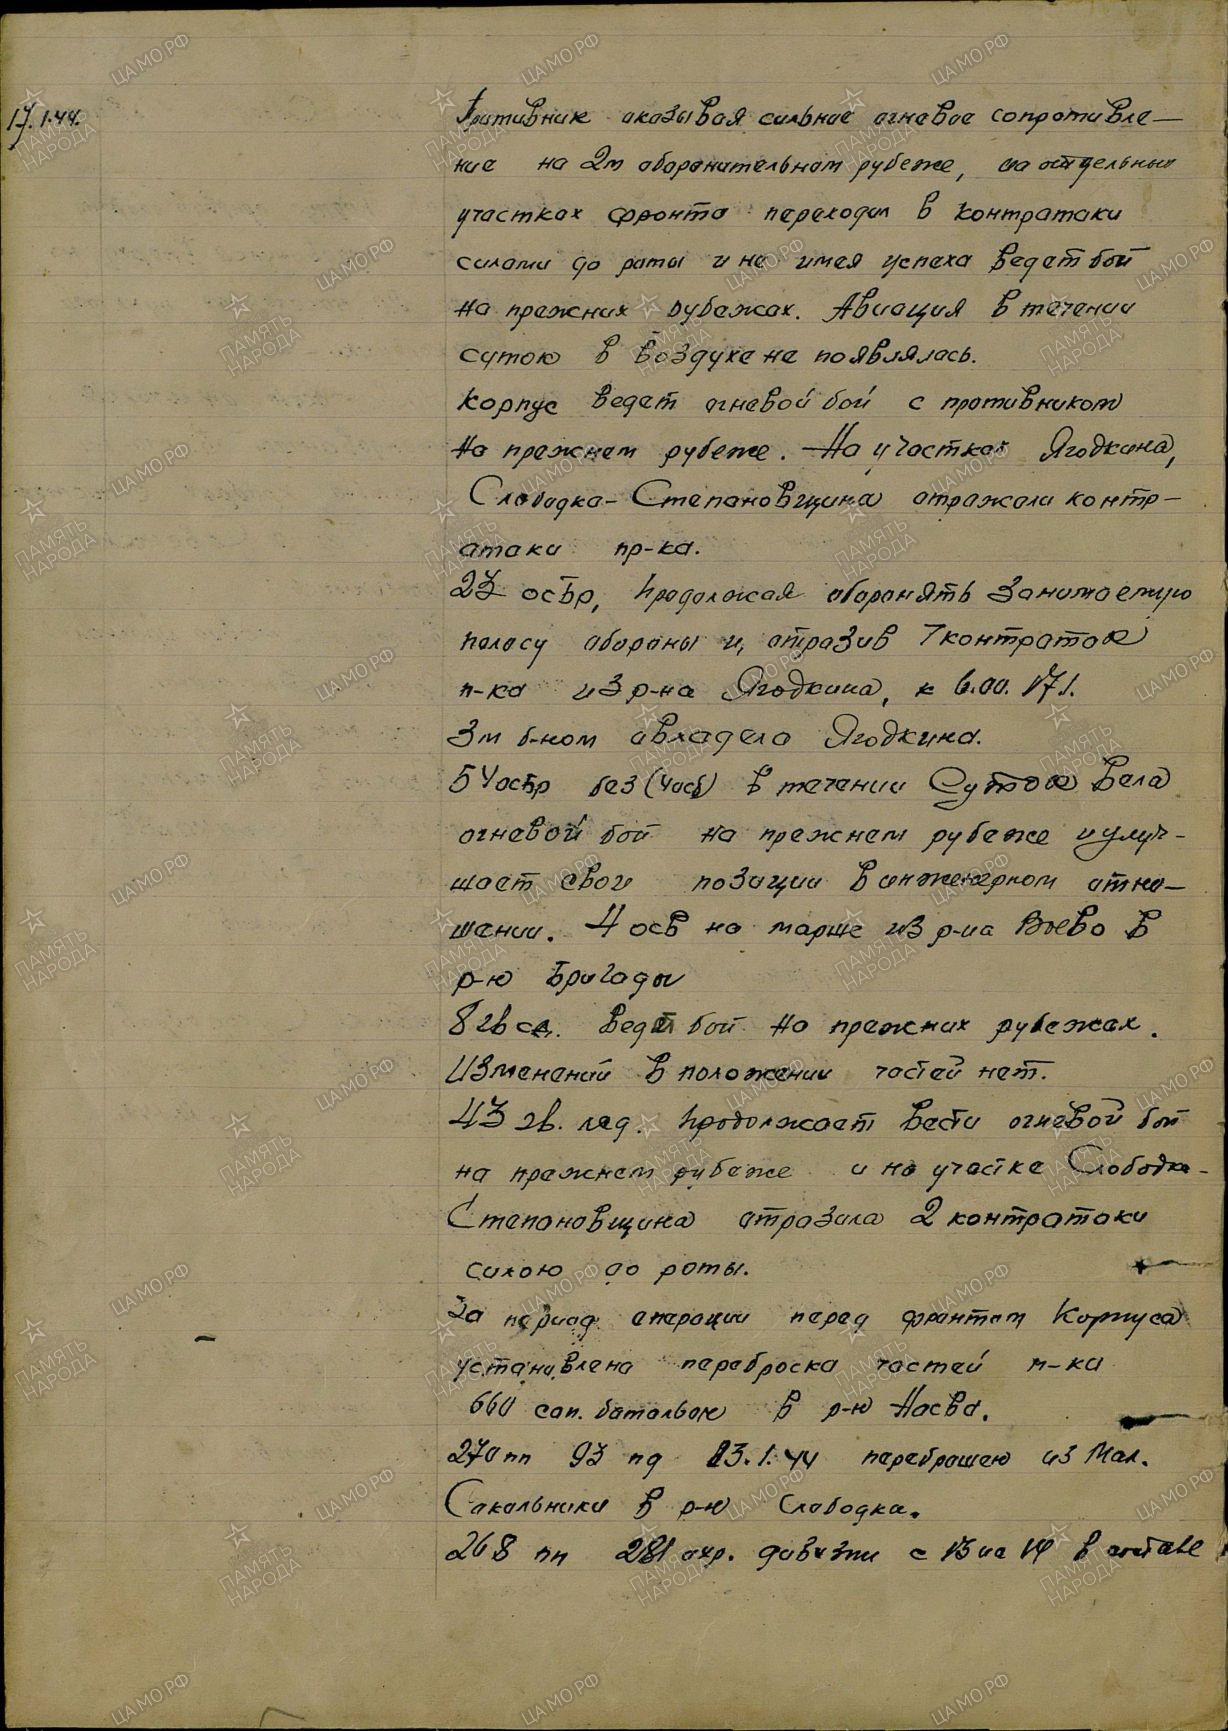 17.1.44.
Противник оказывая сильное огневое сопротивле-
ние на 2м оборонительном рубеже, на отдельных
участках фронта переходил в контратаки
силами до роты и не имея успеха ведет бой
на прежних рубежах. Авиация в течении
суток в воздухе не появлялась.
Корпус ведет огневой бой с противником
на прежнем рубеже. На участках Ягодкина,
Слободка-Степановщина отражали контр-
атаки пр-ка.
23 осбр, продолжая оборонять занимаемую
полосу обороны и, отразив 7 контратак
п-ка из р-на Ягодкина, к 6.00. 17.1.
3м б-ном овладела Ягодкина.
54 осбр без (4осб) в течении суток вела
огневой бой на прежнем рубеже и улуч-
шает свои позиции в инженерном отно-
шении. 4 осб на марше из р-на в
р-н Бригады
8 гв сд. ведет бой на прежних рубежах.
Изменений в положении частей нет.
43 гв. лсд. продолжает вести огневой бой
на прежнем рубеже и на участке Слободка-
Степановщина отразила 2 контратаки
силою до роты.
За период операции перед фронтом Корпуса
установлена переброска частей п-ка
660 сап. батальон в р-н Насва.
270 пп 93 пд 13.1.44 переброшен из Мал.
Сокольники в р-н Слободка.
268 пп 281 охр. дивизии с 13 на 14 в составе
ЦАМО РФ
ПАМЯТЬ НАРОДА